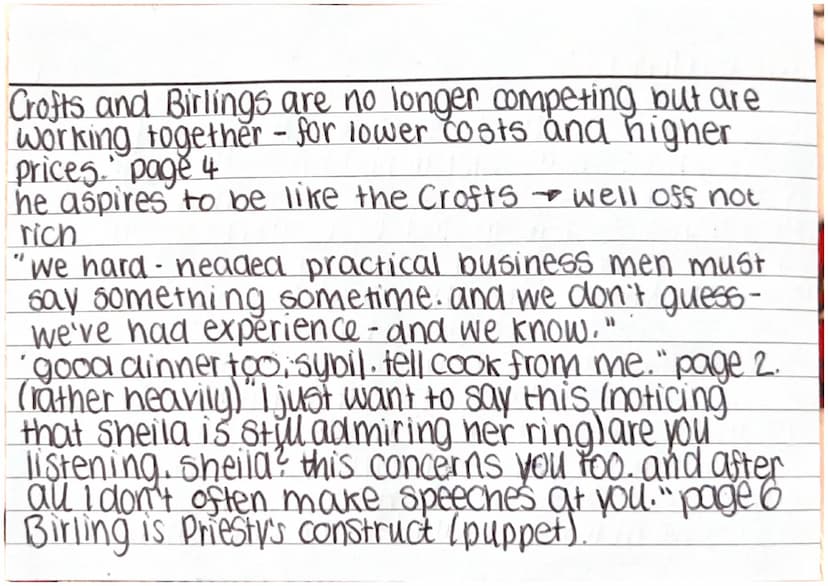 Crofts and Birlings are no longer competing but are
working together - for lower costs and higher
prices.' page 4
he aspires to be like the Crofts → well off not
rich
"we hard-headed practical business men must
say something sometime. and we don't guess-
we've had experience - and we know."
'good dinner too, sybil. tell cook from me." page 2.
(rather heavily) "I just want to say this (noticing
that Sheila is still admiring her ring) are you
listening, sheila? this concerns you too. and after
all I don't often make speeches at you." page 6
Birling is Priesty's construct (puppet).